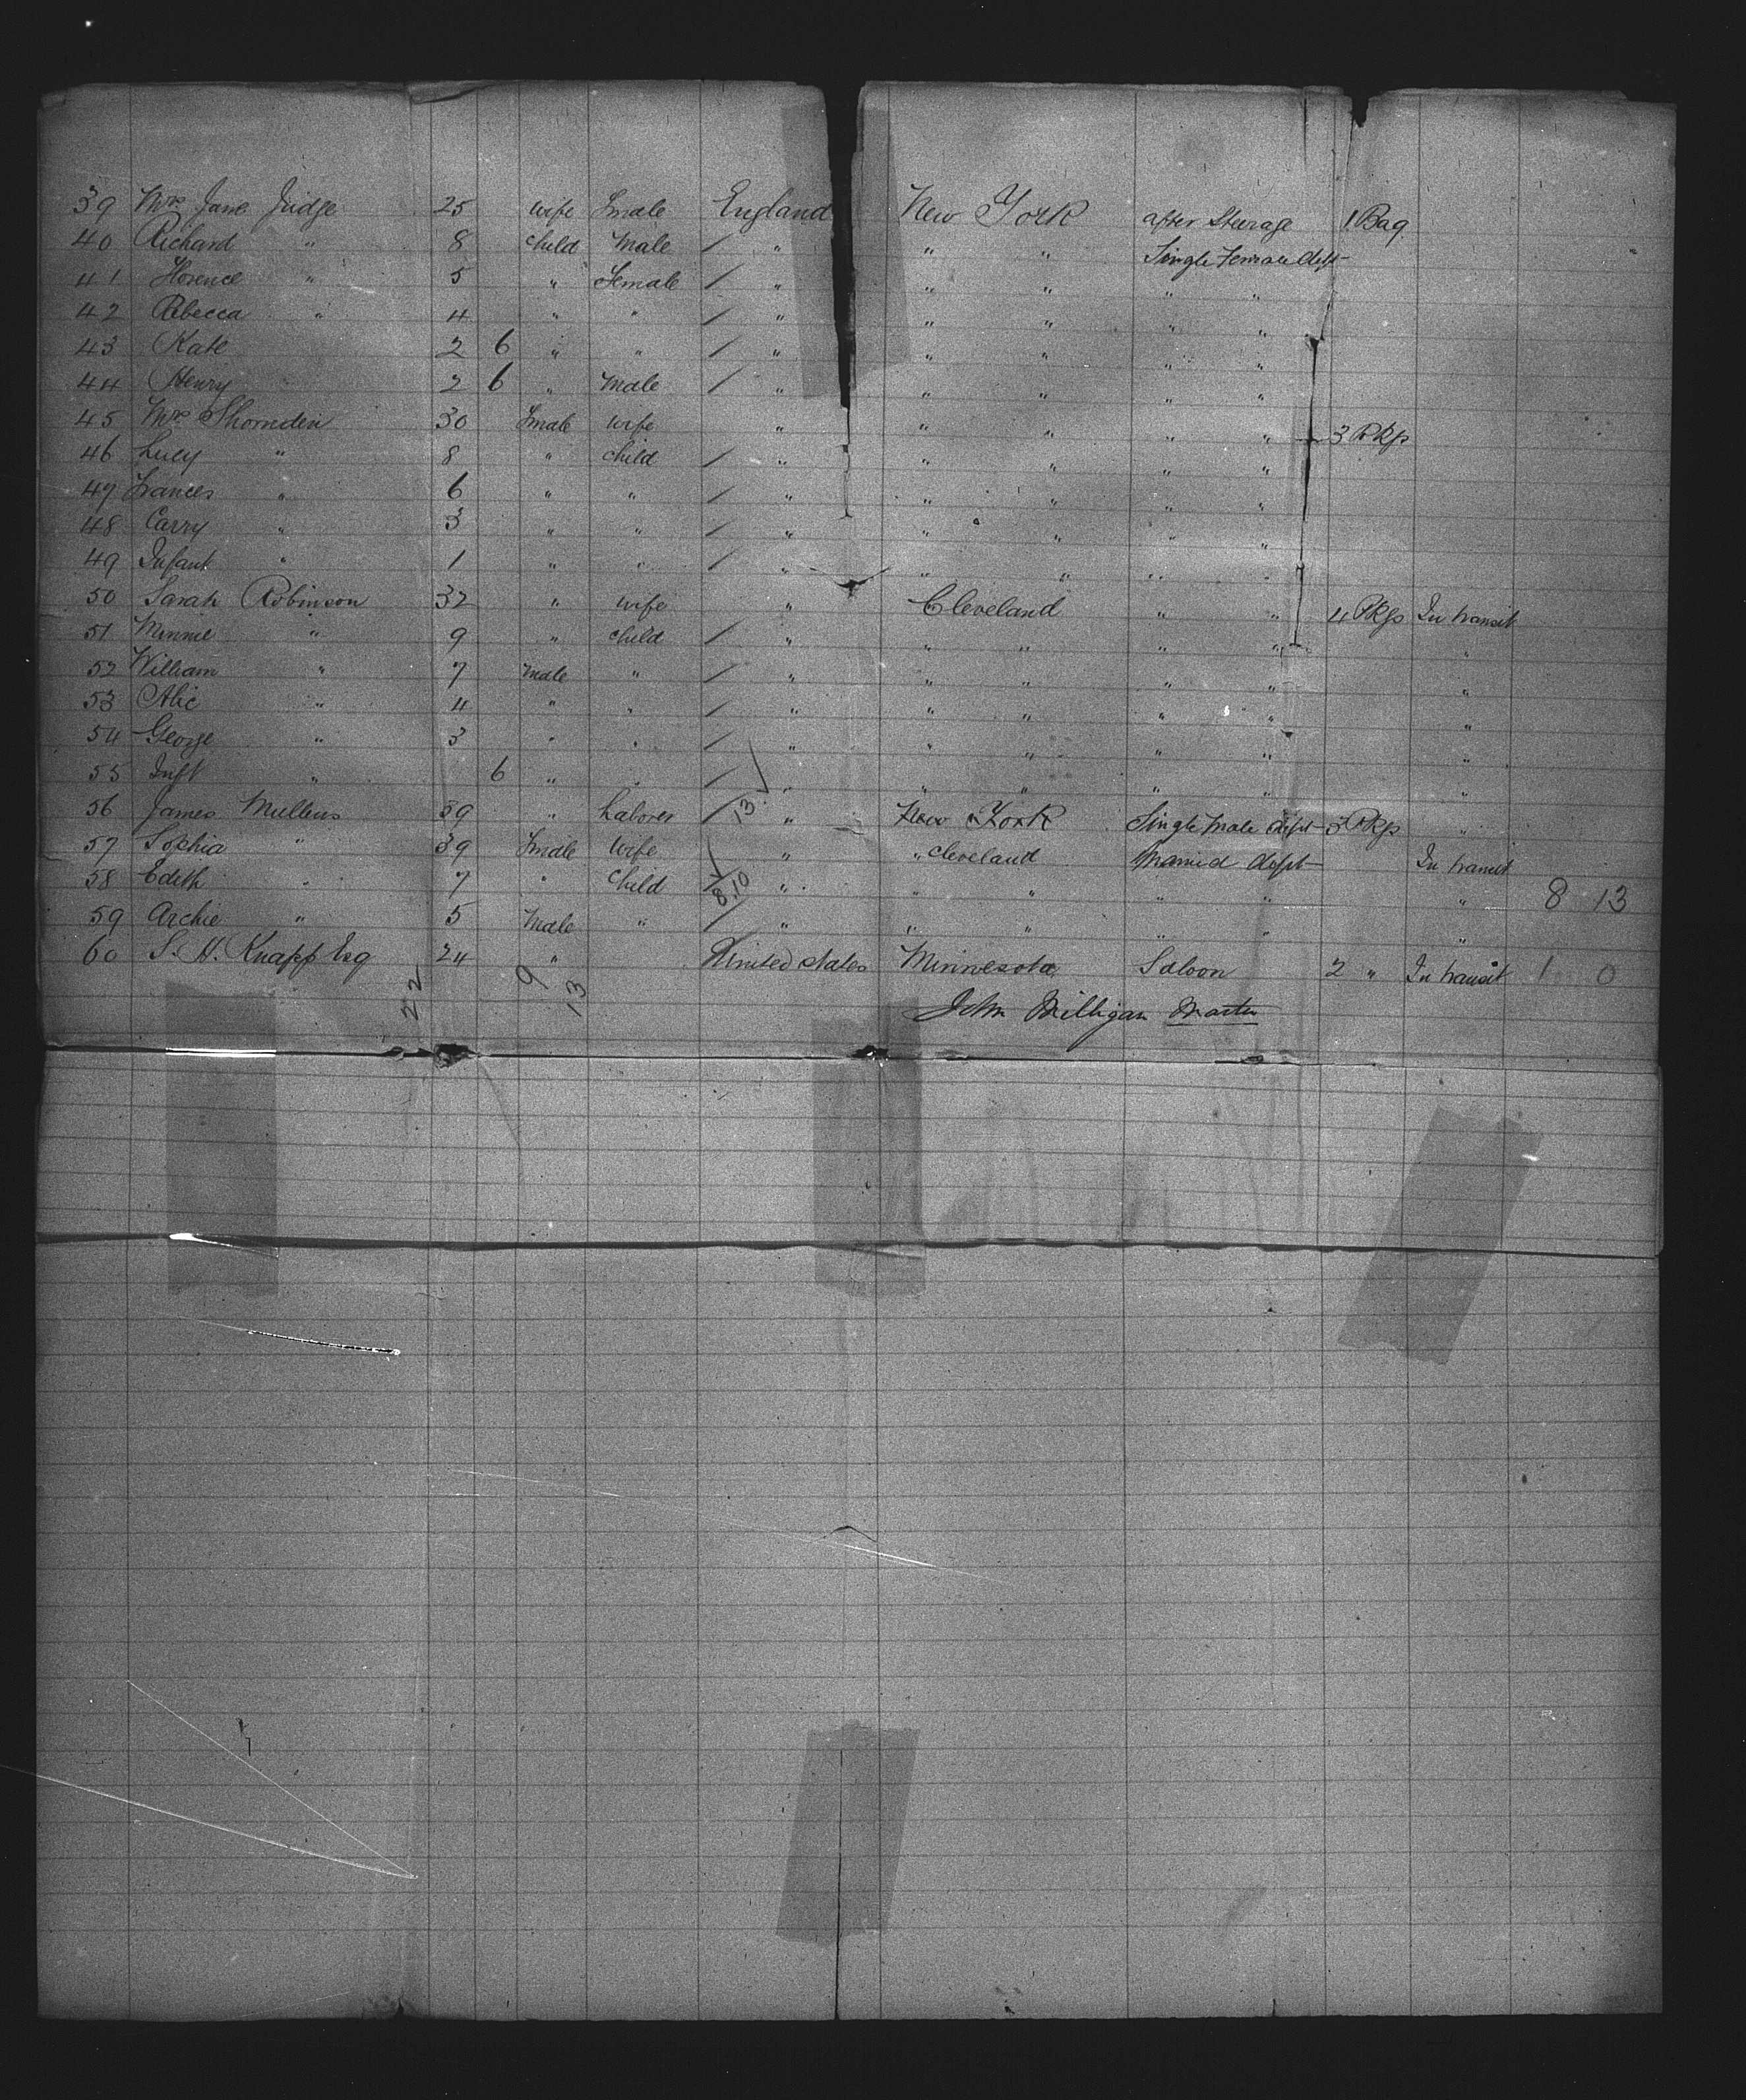 39 Mrs Jane Judge 25 wife Fmale England New York after Steerage 1 Bag
40 Richard " 8 child Male / " " " Single Female dept
41 Florence " 5 " Female / " " " " "
42 Rebecca " 4 " " / " " " " "
43 Kate 2 6 " " / " " " " "
44 Henry " 2 6 " Male / " " " " "
45 Mrs Thornden 30 Fmale wife " " " " " 3 Pkgs
46 Lucy " 8 " child / " " " " "
47 Frances " 6 " " / " " " " "
48 Carry " 3 " " / " " " "
49 Infant " 1 " " / " " " " "
50 Sarah Robinson 32 " wife " Cleveland " " 4 Pkgs In transit
51 Minnie " 9 " child / " " " " " "
52 William " 7 Male " / " " " " " "
53 Alic " 4 " " / " " " " " "
54 George " 3 " " / " " " " " "
55 Inft " 6 " " / " " " " " "
56 James Mullens 39 " Laborer / 13 " New York Single Male dept 3 Pkgs "
57 Sophia " 39 Fmale Wife " " Cleveland Married dept In transit
58 Edith " 7 " Child / 8.10 " " " " " " 8 13
59 Archie " 5 Male " / " " " " " "
60 S. H. Knapp Esq 24 " United States Minnesota Saloon 2 " In transit 1 0
22 9 13
John Milligan Master